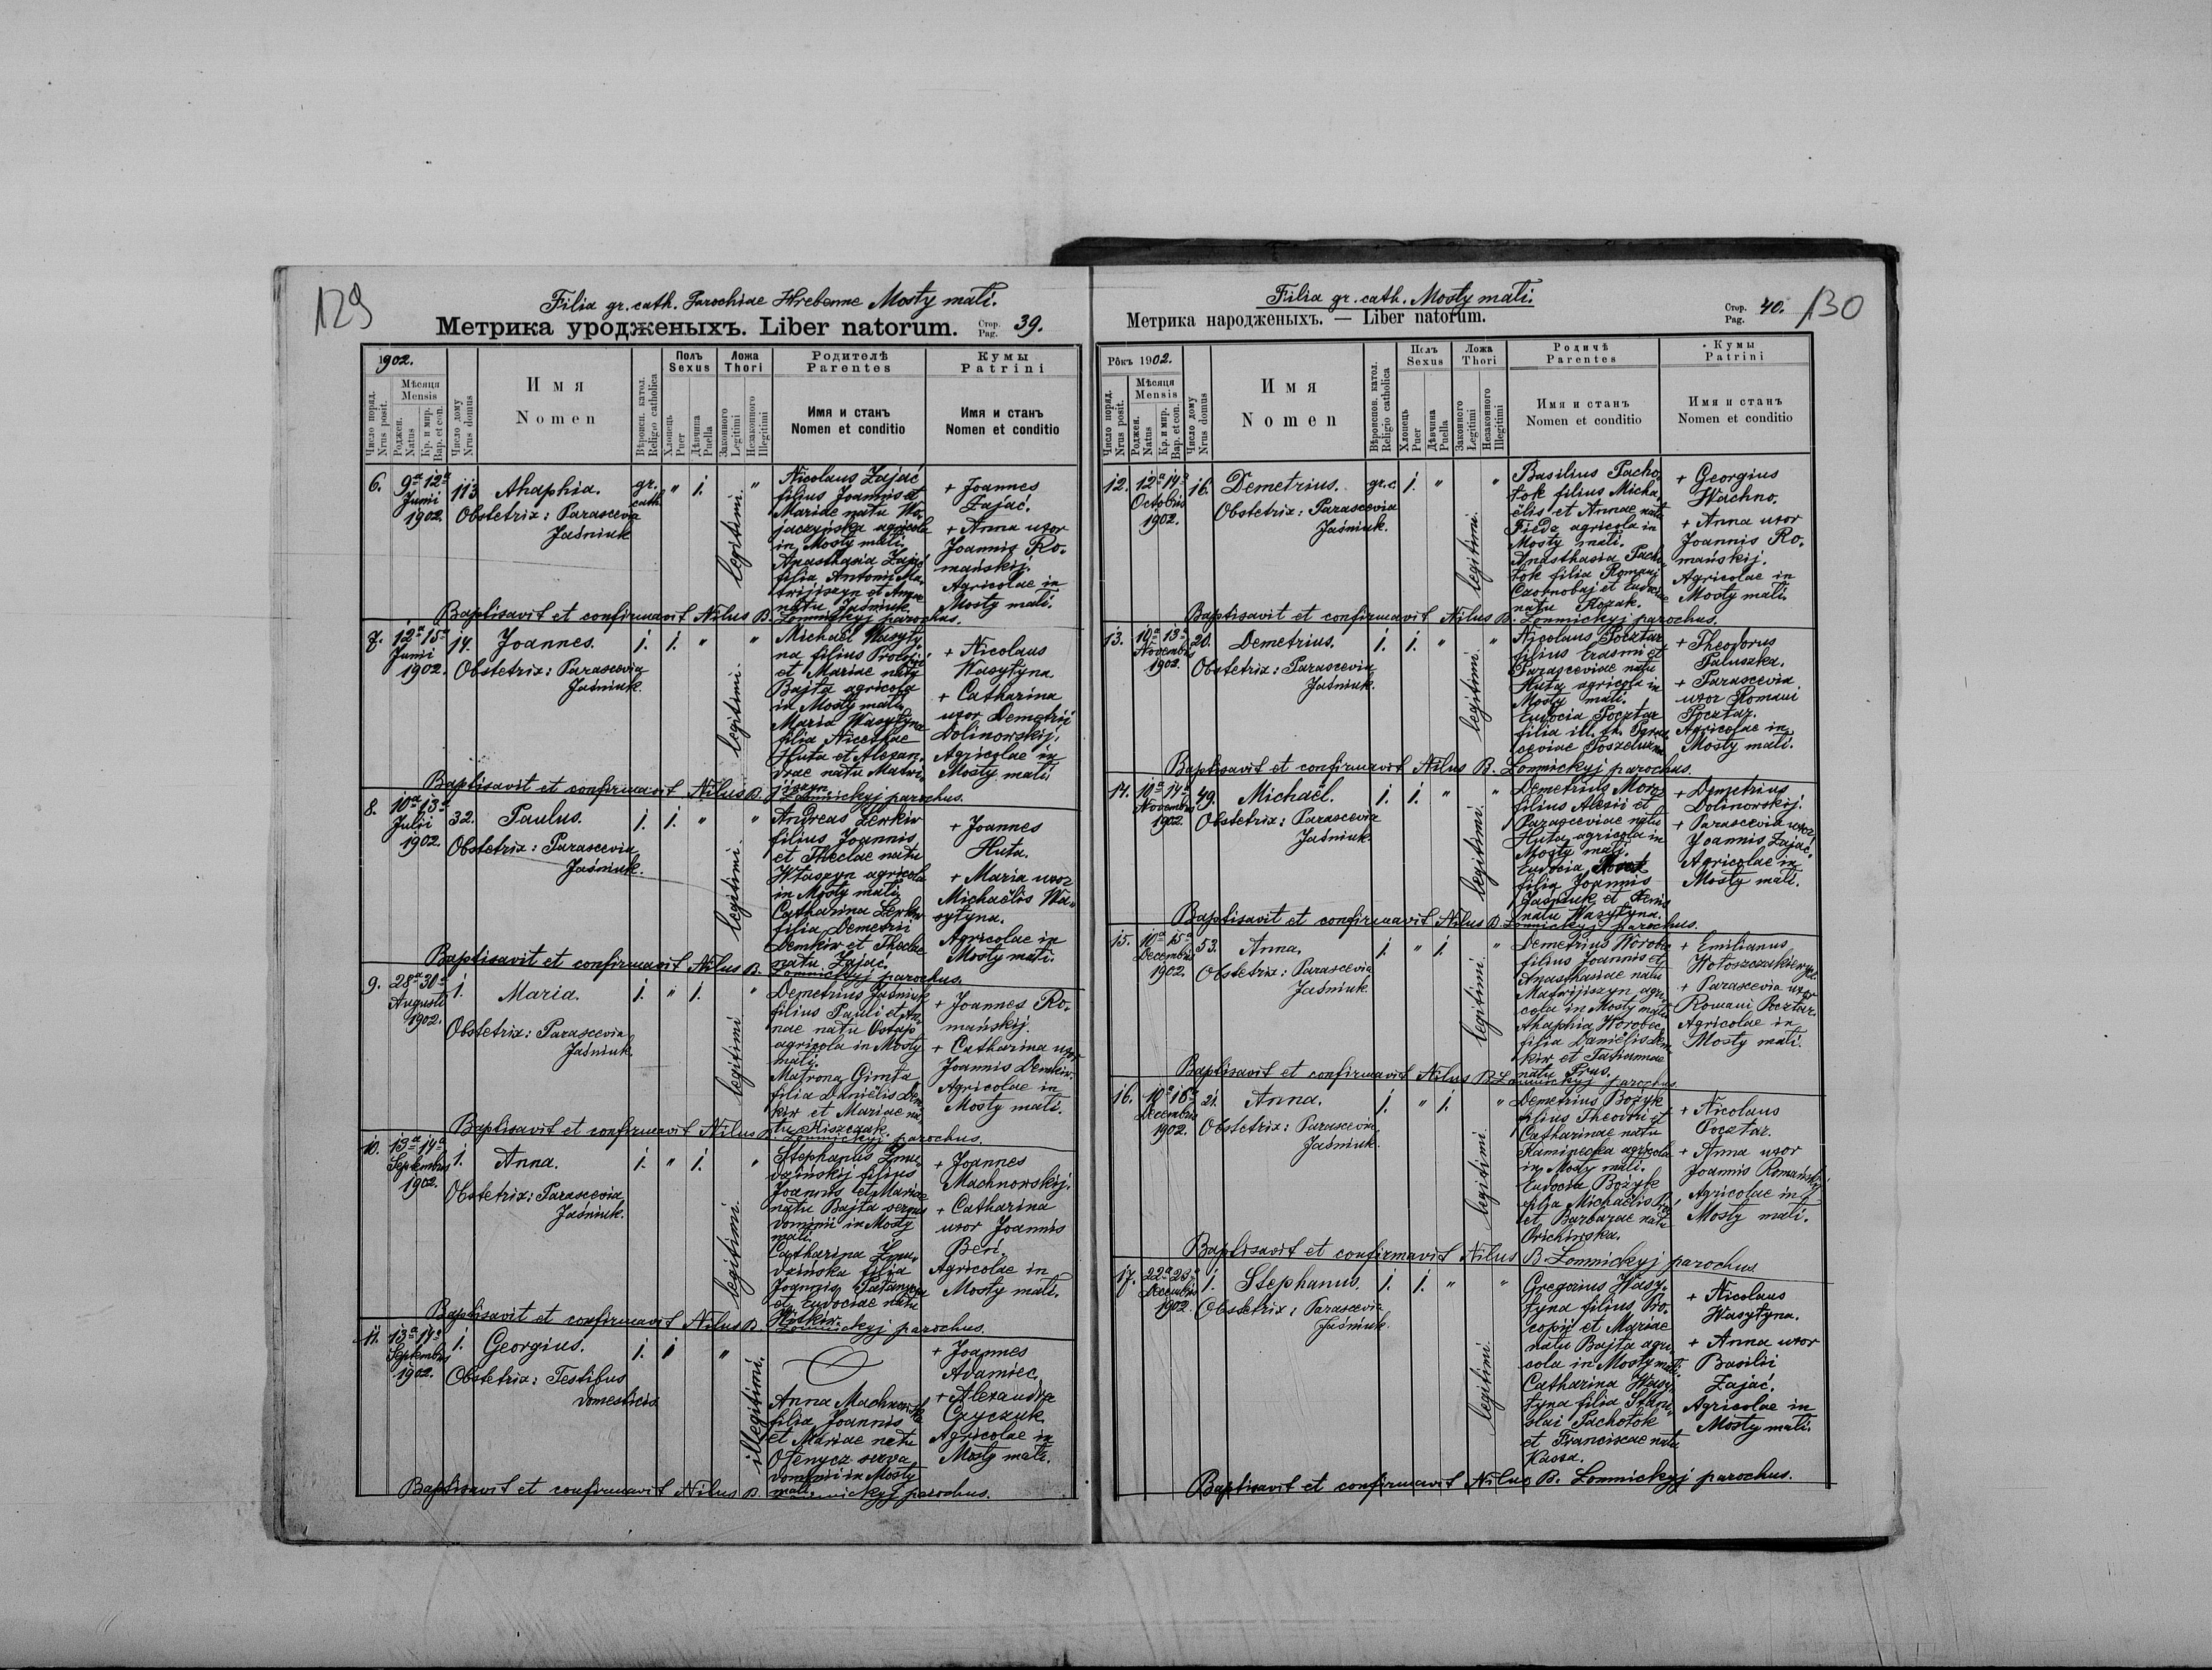 129
Filia gr. cath. Parochiae Hrebenne Mosty mali.
Метрика уродженыхъ. Liber natorum.
Стор.
Pag. 39.
1902.
Число поряд.
Nrus posit.
Мѣсяця
Mensis
Роджен.
Natus
Кр. и мир.
Bap. et con.
Число дому
Nrus domus
Имя
Nomen
Вѣроисп. катол.
Religio catholica
Полъ
Sexus
Хлопець
Puer
Дѣвчина
Puella
Ложа
Thori
Законного
Legitimi
Незаконного
Illegitimi
Родителѣ
Parentes
Имя и станъ
Nomen et conditio
Кумы
Patrini
Имя и станъ
Nomen et conditio
6. 9ª 12ª
Junii
1902.
113 Ahaphia.
Obstetrix: Parascevia
Jaśniuk
gr.
cath.
" 1.
legitimi.
"
Nicolaus Zając
filius Joannis et
Mariae natu Wo-
jaczyńska agricola
in Mosty mali.
Anasthasia Zając
filia Antonii Ma-
trijiszyn et Annae
natu Jaśniuk.
+ Joannes
Zając.
+ Anna uxor
Joannis Ro-
mańskij.
Agricolae in
Mosty mali.
Baptisavit et confirmavit Nilus B. Lomnickyj parochus.
7. 12ª 15ª
Junii
1902.
14. Joannes.
Obstetrix: Parascevia
Jaśniuk.
1. 1. "
legitimi.
"
Michaël Wasyły-
na filius Procopii
et Mariae natu
Bajta agricola
in Mosty mali
Maria Wasyłyna
filia Nicetae
Huta et Alexan-
drae natu Matwi-
jiszyn.
+ Nicolaus
Wasyłyna
+ Catharina
uxor Demetrii
Dolinowskij.
Agricolae in
Mosty mali
Baptisavit et confirmavit Nilus B. Lomnickyj parochus.
8. 10ª 13ª
Julii
1902.
32. Paulus.
Obstetrix: Parascevia
Jaśniuk.
1. 1. "
legitimi.
"
Andreas Lewkiw
filius Joannis
et Theclae natu
Właszyn agricola
in Mosty mali
Catharina Lewkiw
filia Demetrii
Demkiw et Theclae
natu Zając
+ Joannes
Huta.
+ Maria uxor
Michaëlis Wa-
syłyna.
Agricolae in
Mosty mali.
Baptisavit et confirmavit Nilus B. Lomnickyj parochus.
9. 28ª 30ª
Augusti
1902.
1. Maria.
Obstetrix: Parascevia
Jaśniuk.
1. " 1.
legitimi
"
Demetrius Jaśniuk
filius Pauli et An-
nae natu Ostap
agricola in Mosty
mali.
Matrona Gimta
filia Daniëlis Dem-
kiw et Mariae na-
tu Kiszczak.
+ Joannes Ro-
mańskij.
+ Catharina uxor
Joannis Demkiw.
Agricolae in
Mosty mali.
Baptisavit et confirmavit Nilus B. Lomnickyj parochus.
10. 13ª 14ª
Septembris
1902.
1. Anna.
Obstetrix: Parascevia
Jaśniuk.
1. " 1.
legitimi.
"
Stephanus Żmu-
dzińskij filius
Joannis et Mariae
natu Bajta servus
dominii in Mosty
mali.
Catharina Żmu-
dzińska filia
Joannis
et Eudociae natu
+ Joannes
Machnowskij.
+ Catharina
uxor Joannis
Beń.
Agricolae in
Mosty mali.
Baptisavit et confirmavit Nilus B. Lomnickyj parochus.
11. 13ª 14ª
Septembris
1902.
1. Georgius.
Obstetrix: Testibus
domesticis
1. 1 "
illegitimi.
Anna Machnowska
filia Joannis
et Mariae natu
Ołenycz serva
dominii in Mosty
mali.
+ Joannes
Adamiec.
+ Alexandra
Czyczuk.
Agricolae in
Mosty mali.
Baptisavit et confirmavit Nilus B. Lomnickyj parochus.
Filia gr. cath. Mosty mali.
Метрика народженыхъ. — Liber natorum.
Стор.
Pag. 40.
130
Рôкъ 1902.
Число поряд.
Nrus posit.
Мѣсяця
Mensis
Роджен.
Natus
Кр. и мир.
Bap. et con.
Число дому
Nrus domus
Имя
Nomen
Вѣроиспов. катол.
Religio catholica
Полъ
Sexus
Хлопець
Puer
Дѣвчина
Puella
Ложа
Thori
Законного
Legitimi
Незаконного
Illegitimi
Родичѣ
Parentes
Имя и станъ
Nomen et conditio
Кумы
Patrini
Имя и станъ
Nomen et conditio
12. 12ª 14ª
Octobris
1902.
16. Demetrius.
Obstetrix: Parascevia
Jaśniuk.
gr. c. 1. "
legitimi.
"
Basilius Pacho-
łok filius Micha-
ëlis et Annae natu
Fiedz agricola in
Mosty mali.
Anasthasia Pacho-
łok filia Romani
Czornobaj et Eudociae
natu Kozak.
+ Georgius
Wachno.
+ Anna uxor
Joannis Ro-
mańskij.
Agricolae in
Mosty mali.
Baptisavit et confirmavit Nilus B. Lomnickyj parochus.
13. 10ª 13ª
Novembris
1902.
20. Demetrius.
Obstetrix: Parascevia
Jaśniuk.
1. 1. "
legitimi.
"
Nicolaus Pocztar
filius Erasmi et
Parasceviae natu
Huta agricola in
Mosty mali.
Eudocia Pocztar
filia ill. th. Paras-
ceviae
+ Theodorus
Paluszka.
+ Parascevia
uxor Romani
Pocztar.
Agricolae in
Mosty mali.
Baptisavit et confirmavit Nilus B. Lomnickyj parochus.
14. 10ª 14ª
Novembris
1902.
49. Michaël.
Obstetrix: Parascevia
Jaśniuk.
1. 1. "
legitimi.
"
Demetrius Moroz
filius Alexii et
Parasceviae natu
Huta agricola in
Mosty mali.
Eudocia
filia Joannis
Jaśniuk et Xeniae
natu Wasyłyna.
+ Demetrius
Dolinowskij.
+ Parascevia uxor
Joannis Zając.
Agricolae in
Mosty mali.
Baptisavit et confirmavit Nilus B. Lomnickyj parochus.
15. 10ª 15ª
Decembris
1902.
53. Anna.
Obstetrix: Parascevia
Jaśniuk.
1. " 1.
legitimi.
"
Demetrius Worobec
filius Joannis et
Anasthasiae natu
Matwijiszyn agri-
cola in Mosty mali
Ahaphia Worobec
filia Daniëlis Dem-
kiw et Tatiannae
natu Prus.
+ Emilianus
Wołoszczakiewycz
+ Parascevia uxor
Romani Pocztar.
Agricolae in
Mosty mali.
Baptisavit et confirmavit Nilus B. Lomnickyj parochus.
16. 10ª 16ª
Decembris
1902.
21. Anna.
Obstetrix: Parascevia
Jaśniuk.
1. " 1.
legitimi.
"
Demetrius Bożyk
filius Theodori et
Catharinae natu
Kaminecka agricola
in Mosty mali.
Eudocia Bożyk
filia Michaëlis
et Barbarae natu
Orichiwska.
+ Nicolaus
Pocztar.
+ Anna uxor
Joannis Romańskij
Agricolae in
Mosty mali.
Baptisavit et confirmavit Nilus B. Lomnickyj parochus
17. 22ª 23ª
Decembris
1902.
1. Stephanus.
Obstetrix: Parascevia
Jaśniuk.
1. 1. "
legitimi.
"
Gregorius Wasy-
łyna filius Pro-
copii et Mariae
natu Bajta agri-
cola in Mosty mali.
Catharina Wasy-
łyna filia Stani-
slai Pachołok
et Franciscae natu
Kassa.
+ Nicolaus
Wasyłyna.
+ Anna uxor
Basilii
Zając.
Agricolae in
Mosty mali.
Baptisavit et confirmavit Nilus B. Lomnickyj parochus.